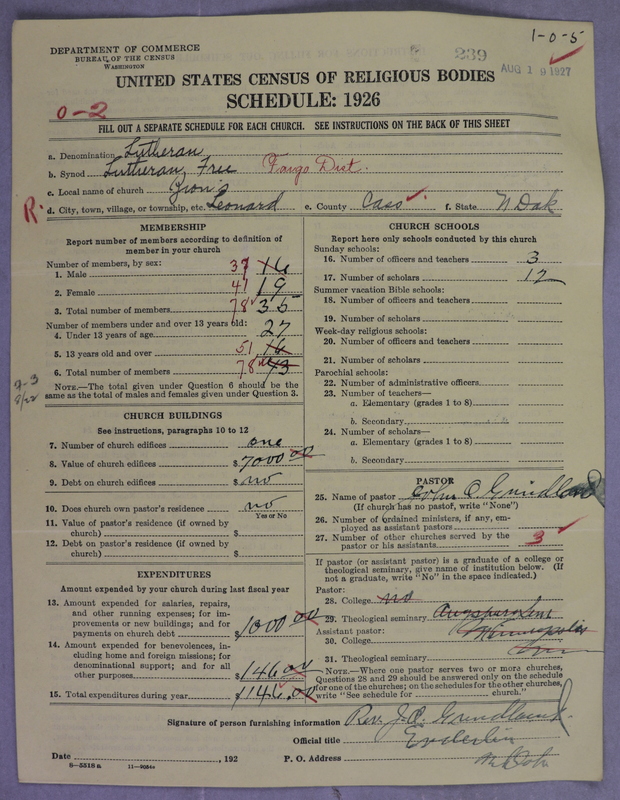 1-0-5
DEPARTMENT OF COMMERCE
BUREAU OF THE CENSUS
WASHINGTON
239
AUG 19 1927
UNITED STATES CENSUS OF RELIGIOUS BODIES
SCHEDULE: 1926
0-2
FILL OUT A SEPARATE SCHEDULE FOR EACH CHURCH. SEE INSTRUCTIONS ON THE BACK OF THIS SHEET
a. Denomination Lutheran
b. Synod Lutheran Free Fargo Dist.
c. Local name of church Zion's
R. d. City, town, village, or township, etc. Leonard e. County Cass f. State N Dak
MEMBERSHIP
Report number of members according to definition of
member in your church
Number of members, by sex:
1. Male 37 16
2. Female 41 19
3. Total number of members 78 35
Number of members under and over 13 years old:
4. Under 13 years of age 27
5. 13 years old and over 51 16
6. Total number of members 78 43
NOTE.—The total given under Question 6 should be the
same as the total of males and females given under Question 3.
CHURCH BUILDINGS
See instructions, paragraphs 10 to 12
7. Number of church edifices one
8. Value of church edifices $7000 00
9. Debt on church edifices $ no
10. Does church own pastor's residence no
Yes or No
11. Value of pastor's residence (if owned by
church) $
12. Debt on pastor's residence (if owned by
church) $
EXPENDITURES
Amount expended by your church during last fiscal year
13. Amount expended for salaries, repairs,
and other running expenses; for im-
provements or new buildings; and for
payments on church debt $1000 00
14. Amount expended for benevolences,
including home and foreign missions; for
denominational support; and for all
other purposes $146 00
15. Total expenditures during year $1146.00
CHURCH SCHOOLS
Report here only schools conducted by this church
Sunday schools:
16. Number of officers and teachers 3
17. Number of scholars 12
Summer vacation Bible schools:
18. Number of officers and teachers
19. Number of scholars
Week-day religious schools:
20. Number of officers and teachers
21. Number of scholars
Parochial schools:
22. Number of administrative officers
23. Number of teachers—
a. Elementary (grades 1 to 8)
b. Secondary
24. Number of scholars—
a. Elementary (grades 1 to 8)
b. Secondary
PASTOR
25. Name of pastor John O Grindland
(If church has no pastor, write "None")
26. Number of ordained ministers, if any, em-
ployed as assistant pastors
27. Number of other churches served by the
pastor or his assistants 3
If pastor (or assistant pastor) is a graduate of a college or
theological seminary, give name of institution below. (If
not a graduate, write "No" in the space indicated.)
Pastor:
28. College no
29. Theological seminary Augsburg Sem
Assistant pastor: Minneapolis
30. College
31. Theological seminary
NOTE.—Where one pastor serves two or more churches,
Questions 28 and 29 should be answered only on the schedule
for one of the churches; on the schedules for the other churches,
write "See schedule for church."
Signature of person furnishing information Rev. J. O. Grindland
Official title Enderlin
Date , 192 P. O. Address N. Dak
8—5518a 11—9054a